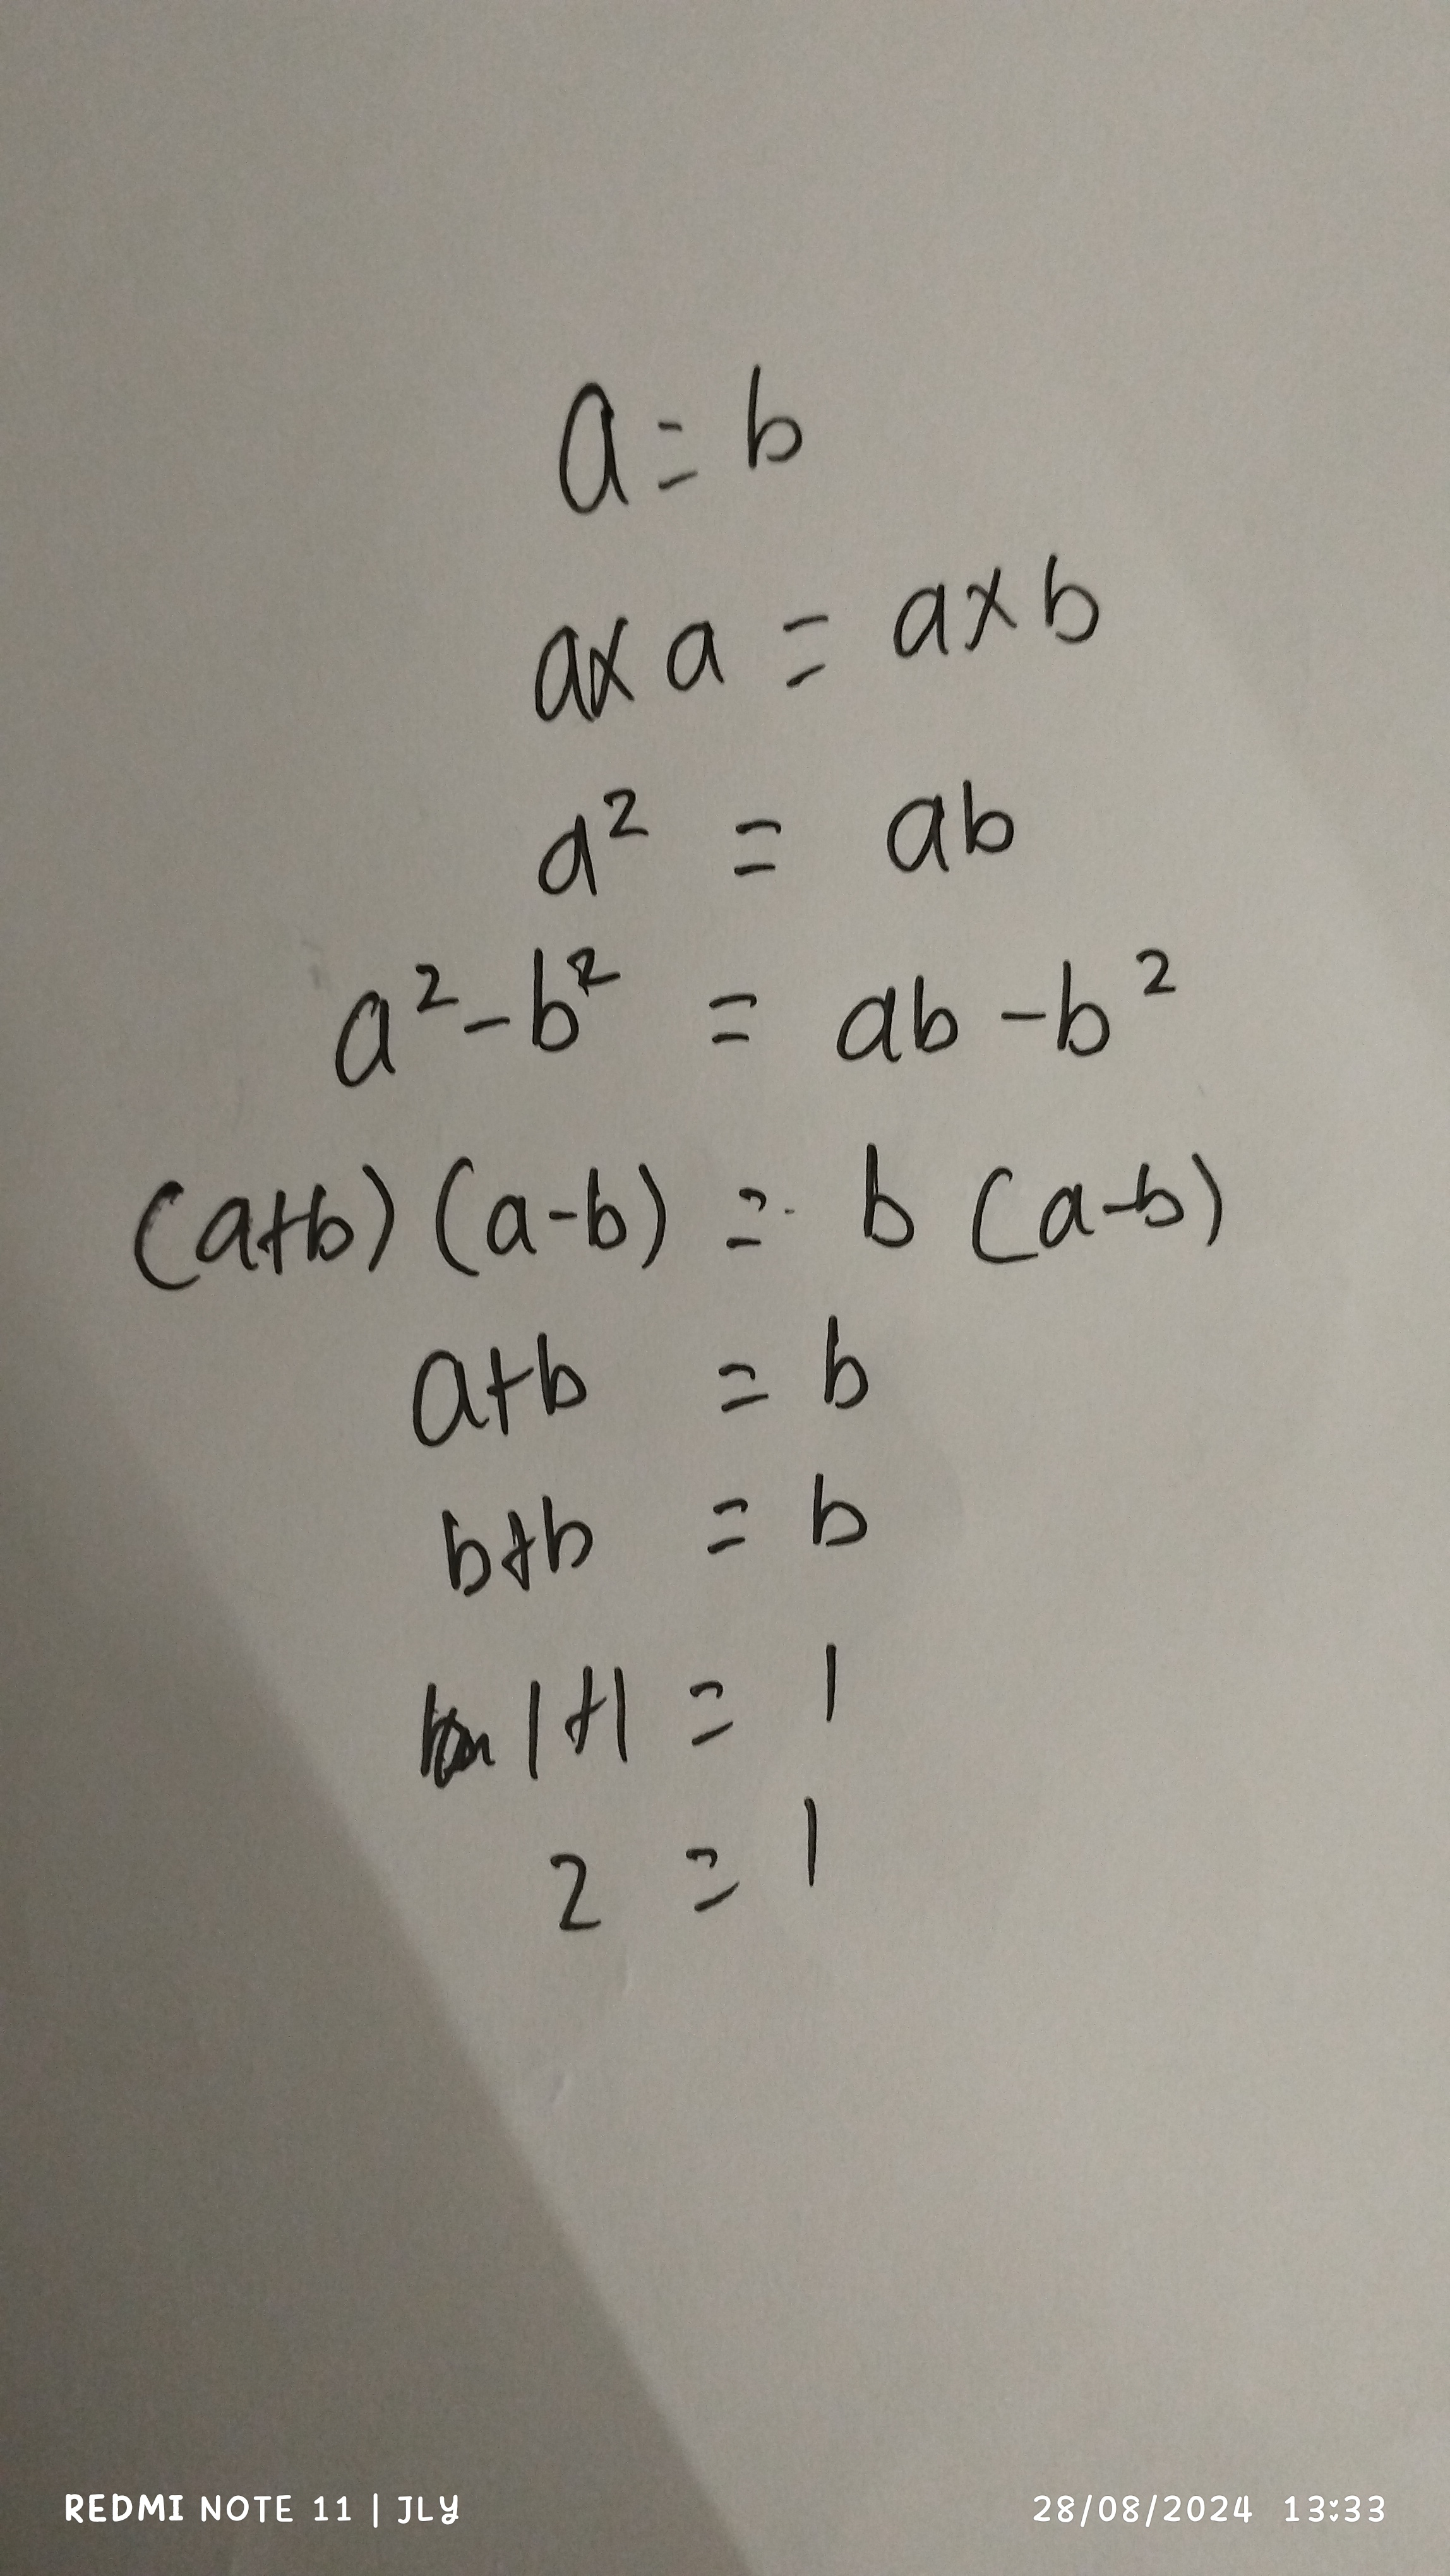 a = b
a x a = a x b
a² = ab
a² - b² = ab - b²
(a+b) (a-b) = b (a-b)
a+b = b
b+b = b
1+1 = 1
2 = 1
REDMI NOTE 11 | JLY 28/08/2024 13:33